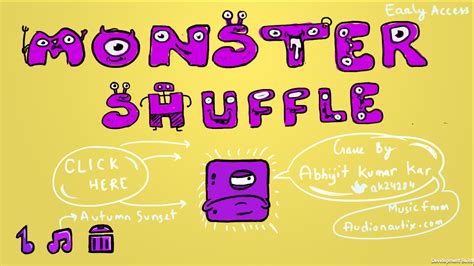 Early Access
MONSTER
SHUFFLE
CLICK
HERE
Game By
Abhijit Kumar Kar
Autumn Sunset
Music From
Audionautix.com
Development Build